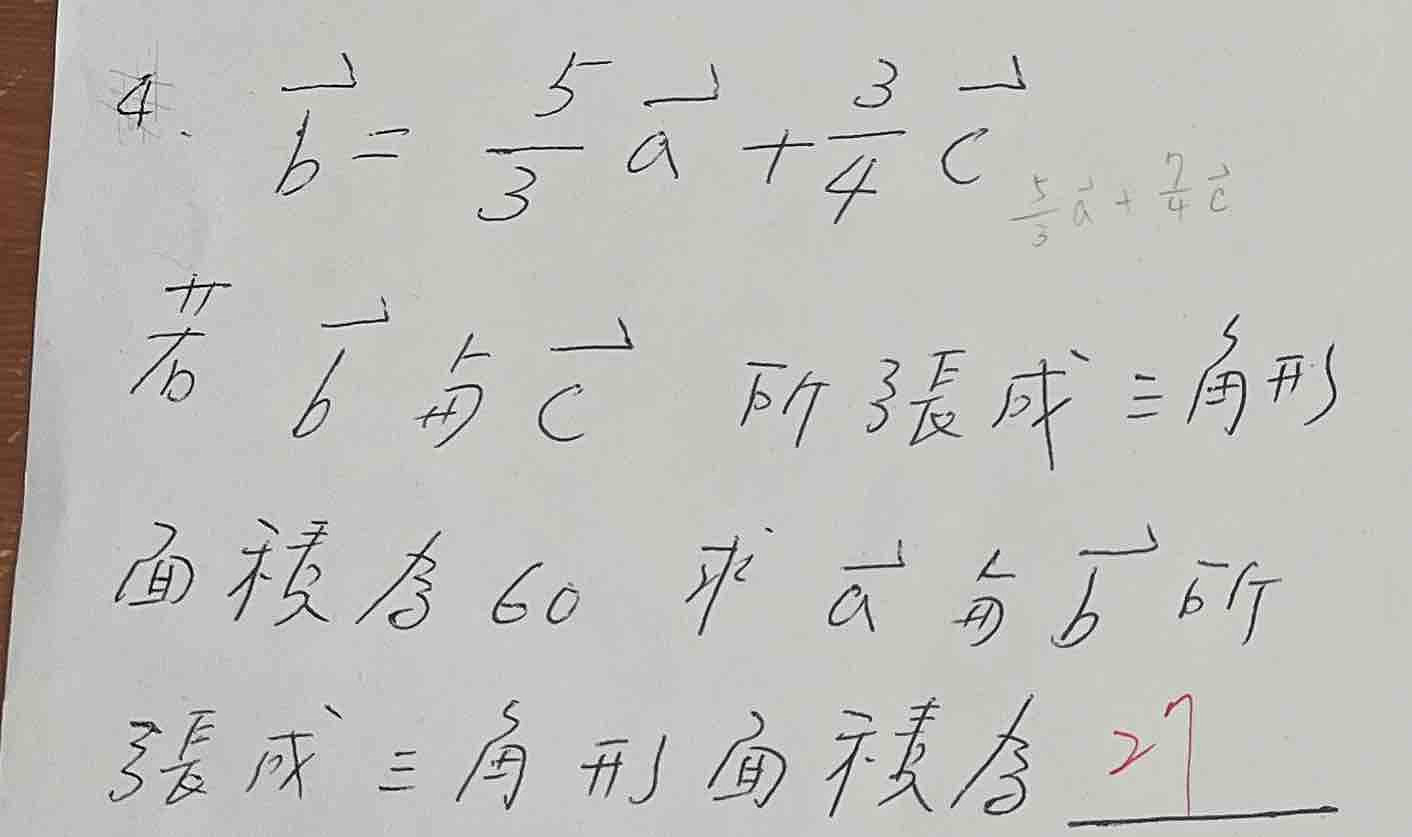 4. b⃗ = 5/3 a⃗ + 3/4 c⃗
5/3 a⃗ + 7/4 c⃗
若 b⃗ 与 c⃗ 所張成三角形
面積為 60 求 a⃗ 与 b⃗ 所
張成三角形面積為 27